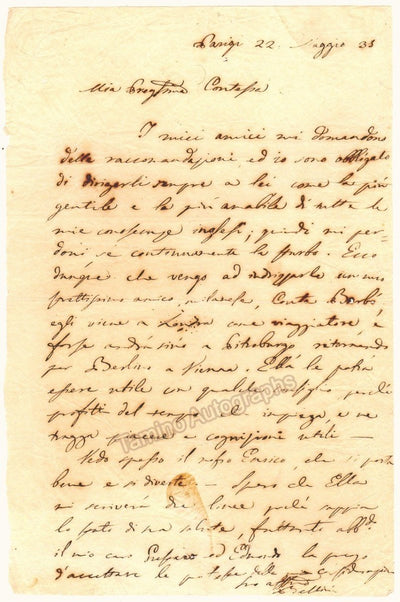 Parigi 22 Maggio 35
Mia Pregma Contessa
I miei amici mi domandano
delle raccomandazioni, ed io sono obbligato
di dirigerli sempre a lei come la più
gentile e la più amabile di tutte le
mie conoscenze inglesi; quindi mi per-
doni se continuamente la disturbo. Ecco
dunque che vengo ad indirizzarle un mio
strettissimo amico, milanese, Conte Barbò
egli viene a Londra come viaggiatore, e
forse andrà sino a Pitroburgo ritornando
per Berlino a Vienna. Ella le potrà
essere utile con qualche consiglio perchè
profitti del tempo che impiega, e ne
tragga piacere e cognizioni utili —
Vedo spesso il nostro Enrico, che si porta
bene e si diverte — Spero che Ella
mi scriverà due linee perchè sappia
lo stato di sua salute, frattanto abb.
il mio caro Giuseppe ed Edoardo la prego
d'accettare le proteste della
suo affmo
Bellini
Tamino Autographs